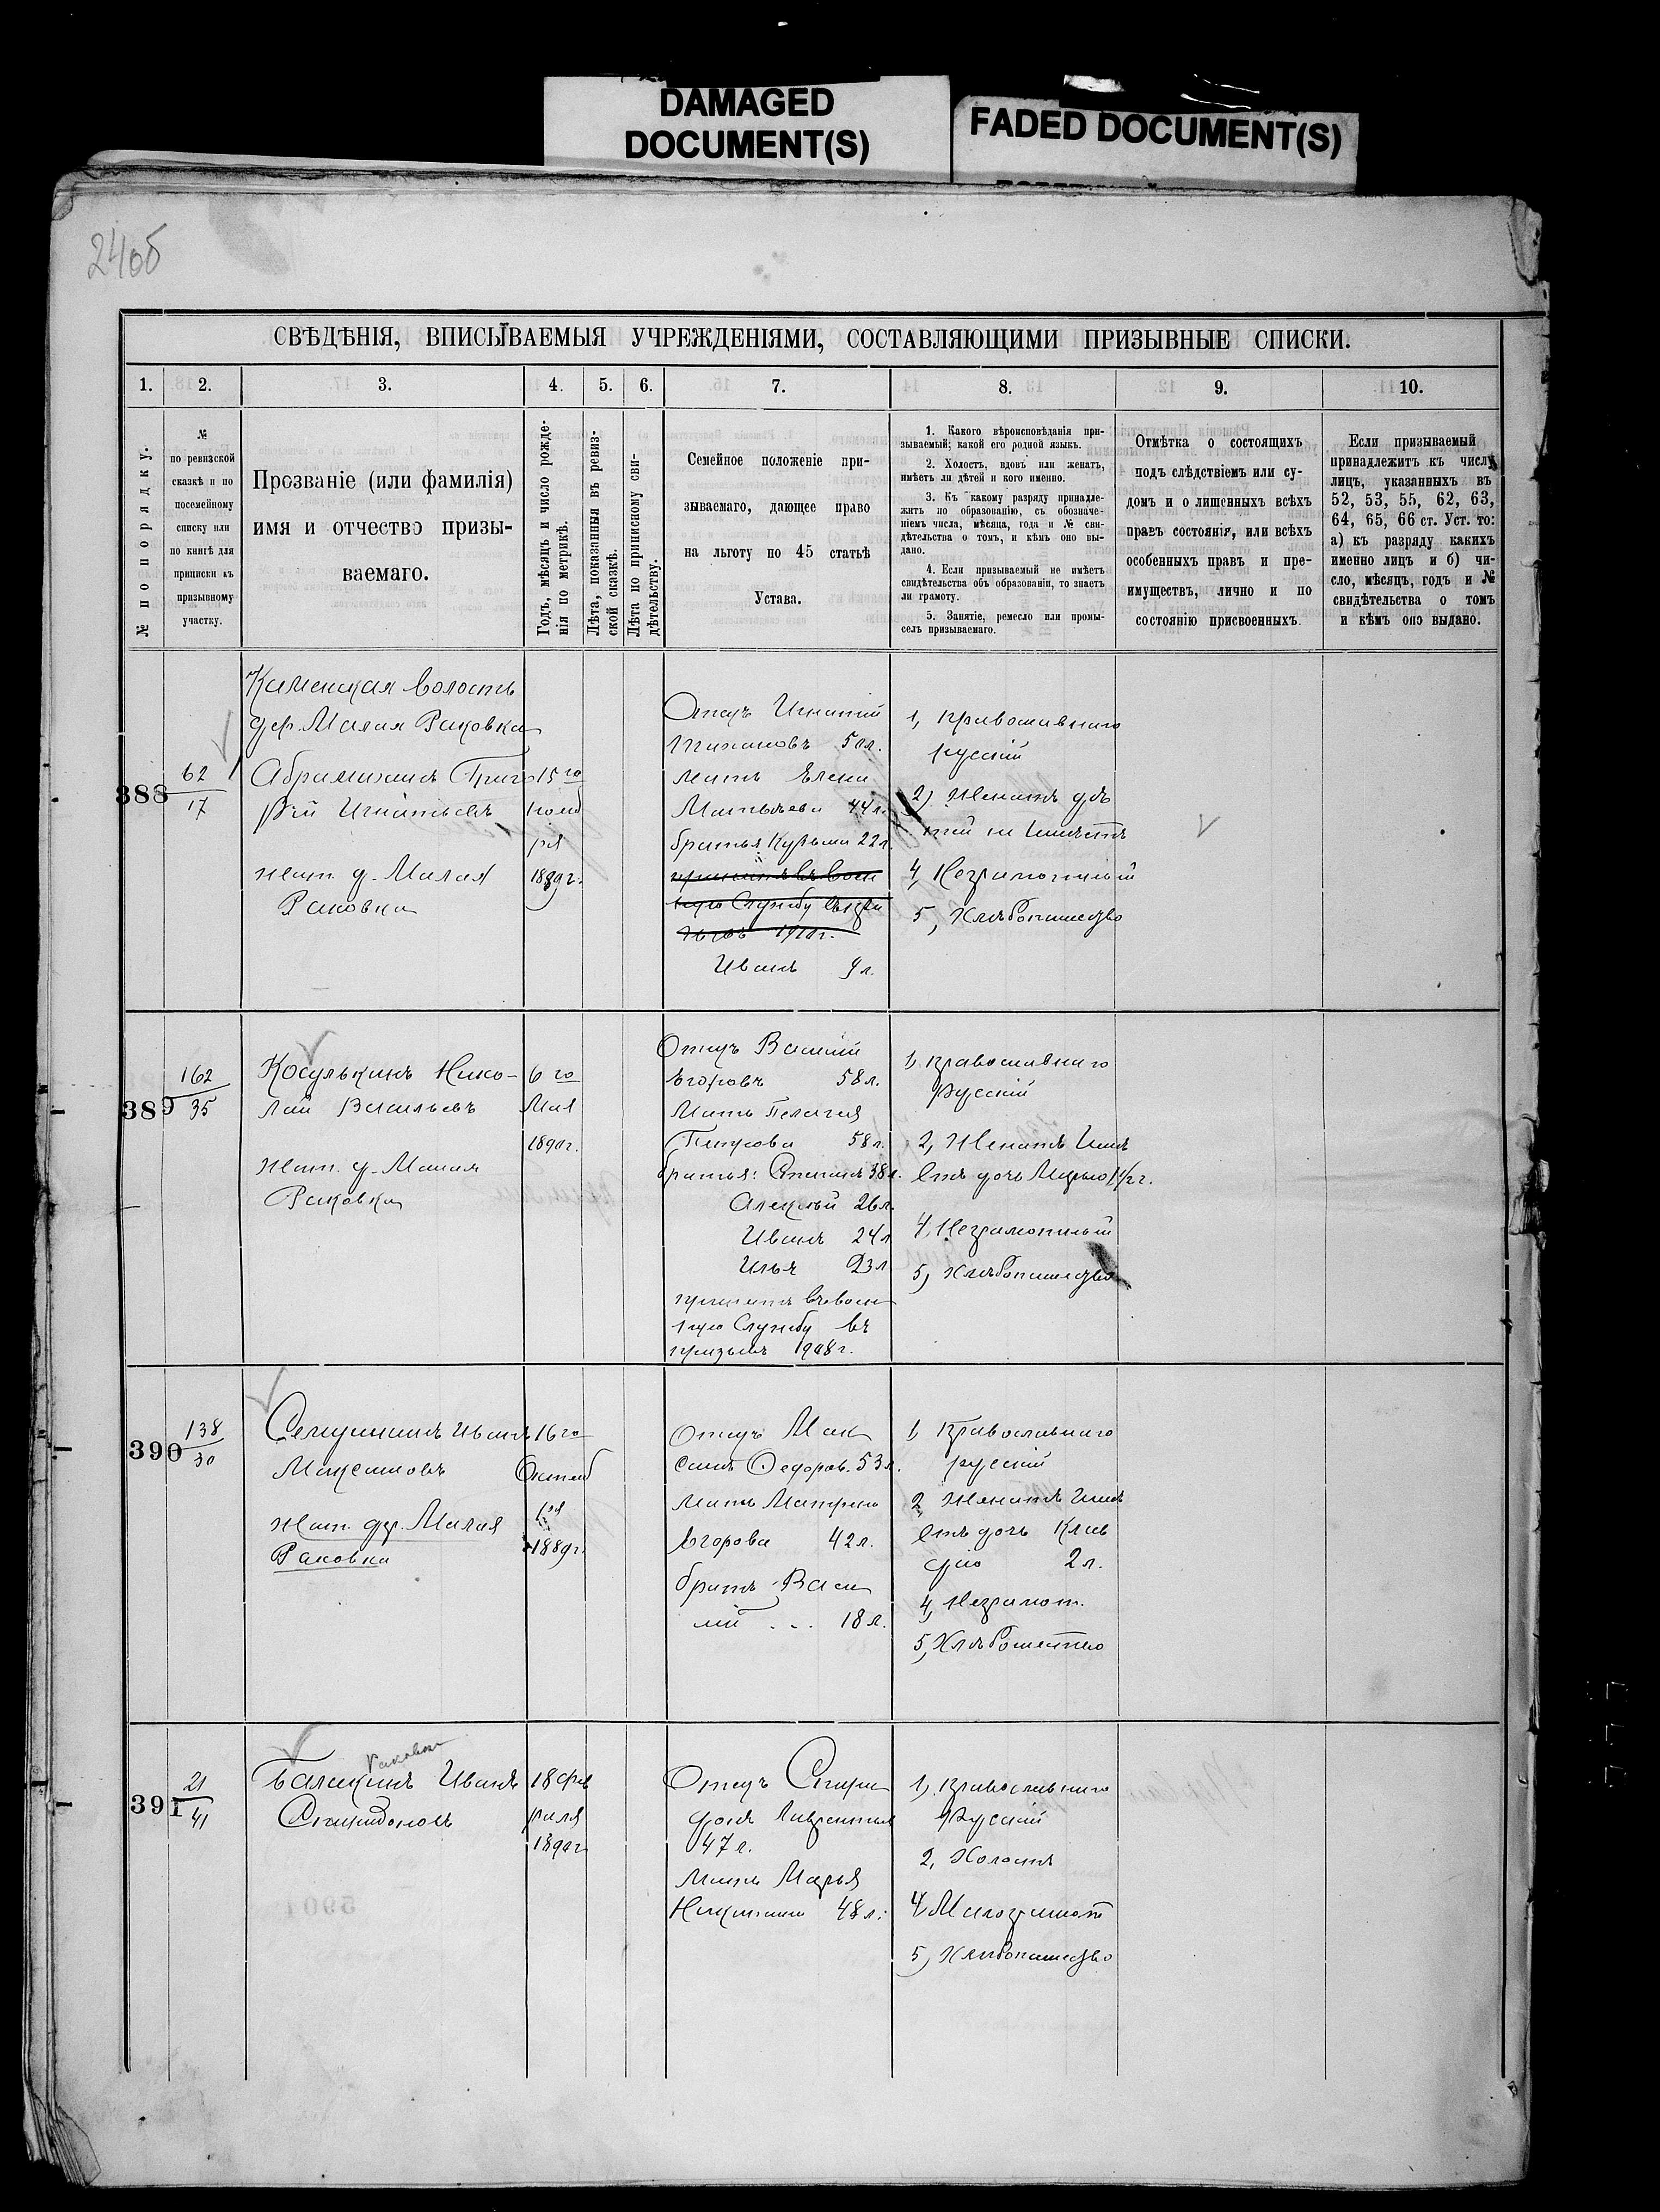 DAMAGED
DOCUMENT(S)
FADED DOCUMENT(S)
240б
СВѢДѢНІЯ, ВПИСЫВАЕМЫЯ УЧРЕЖДЕНІЯМИ, СОСТАВЛЯЮЩИМИ ПРИЗЫВНЫЕ СПИСКИ.
1. 2. 3. 4. 5. 6. 7. 8. 9. 10.
№ по порядку.
№
по ревизской
сказкѣ и по
посемейному
списку или
по книгѣ для
приписки къ
призывному
участку.
Прозваніе (или фамилія)
имя и отчество призы-
ваемаго.
Годъ, мѣсяцъ и число рожде-
нія по метрикѣ.
Лѣта, показанныя въ ревиз-
ской сказкѣ.
Лѣта по приписному сви-
дѣтельству.
Семейное положеніе при-
зываемаго, дающее право
на льготу по 45 статьѣ
Устава.
1. Какого вѣроисповѣданія при-
зываемый; какой его родной языкъ.
2. Холостъ, вдовъ или женатъ,
имѣетъ ли дѣтей и кого именно.
3. Къ какому разряду принадле-
житъ по образованію, съ обозначе-
ніемъ числа, мѣсяца, года и № сви-
дѣтельства о томъ, и кѣмъ оно вы-
дано.
4. Если призываемый не имѣетъ
свидѣтельства объ образованіи, то знаетъ
ли грамоту.
5. Занятіе, ремесло или промы-
селъ призываемаго.
Отмѣтка о состоящихъ
подъ слѣдствіемъ или су-
домъ и о лишенныхъ всѣхъ
правъ состоянія, или всѣхъ
особенныхъ правъ и пре-
имуществъ, лично и по
состоянію присвоенныхъ.
Если призываемый
принадлежитъ къ числу
лицъ, указанныхъ въ
52, 53, 55, 62, 63,
64, 65, 66 ст. Уст. то:
а) къ разряду какихъ
именно лицъ и б) чи-
сло, мѣсяцъ, годъ и №
свидѣтельства о томъ
и кѣмъ оно выдано.
388
62
17
Каменская волость
дер. Малая Раковка
Абрамкинъ Григо
рій Игнатьевъ
жит. д. Малая
Раковка
15го
нояб
ря
1889г.
Отецъ Игнатій
50л.
Мать Елена
Матвѣева 44л.
братья Кузьма 22л.
принятъ въ воен
ную службу въ при
зывъ 1910г.
Иванъ 9л.
1, православнаго
русскій
2) Женатъ дѣ
тей не имѣетъ
4, Неграмотный
5, Хлѣбопашество
389
162
35
Косулькинъ Нико-
лай Васильевъ
жит. д. Малая
Раковка
6го
Мая
1890г.
Отецъ Василій
Егоровъ 58л.
Мать Пелагея
58л.
братья: Степанъ 38л.
Алексѣй 26л.
Иванъ 24л
Илья 23л
принятъ въ воен
ную службу въ
призывъ 1908г.
1, православнаго
Русскій
2, Женатъ имѣ
етъ дочь Марью 1 1/2г.
4, Неграмотный
5, Хлѣбопашество
390
138
30
Семушкинъ Иванъ
Максимовъ
жит. др. Малая
Раковка
16го
Октяб
ря
1889г.
Отецъ Мак
симъ Федоров. 53л.
Мать Матрена
Егорова 42л.
братъ Васи
лій ... 18л.
1, Православнаго
русскій
2, Женатъ имѣ
етъ дочь Клав
дію 2л.
4, Неграмот.
5, Хлѣбопаш
391
21
41
Раковка
Балакинъ Иванъ
Спиридоновъ
18 фев
раля
1890г
Отецъ Спири
донъ Лаврентьев
47л.
Мать Марья
Никитина 48л.
1, православнаго
Русскій
2, Холостъ
4, Малограмот
5, Хлѣбопашество